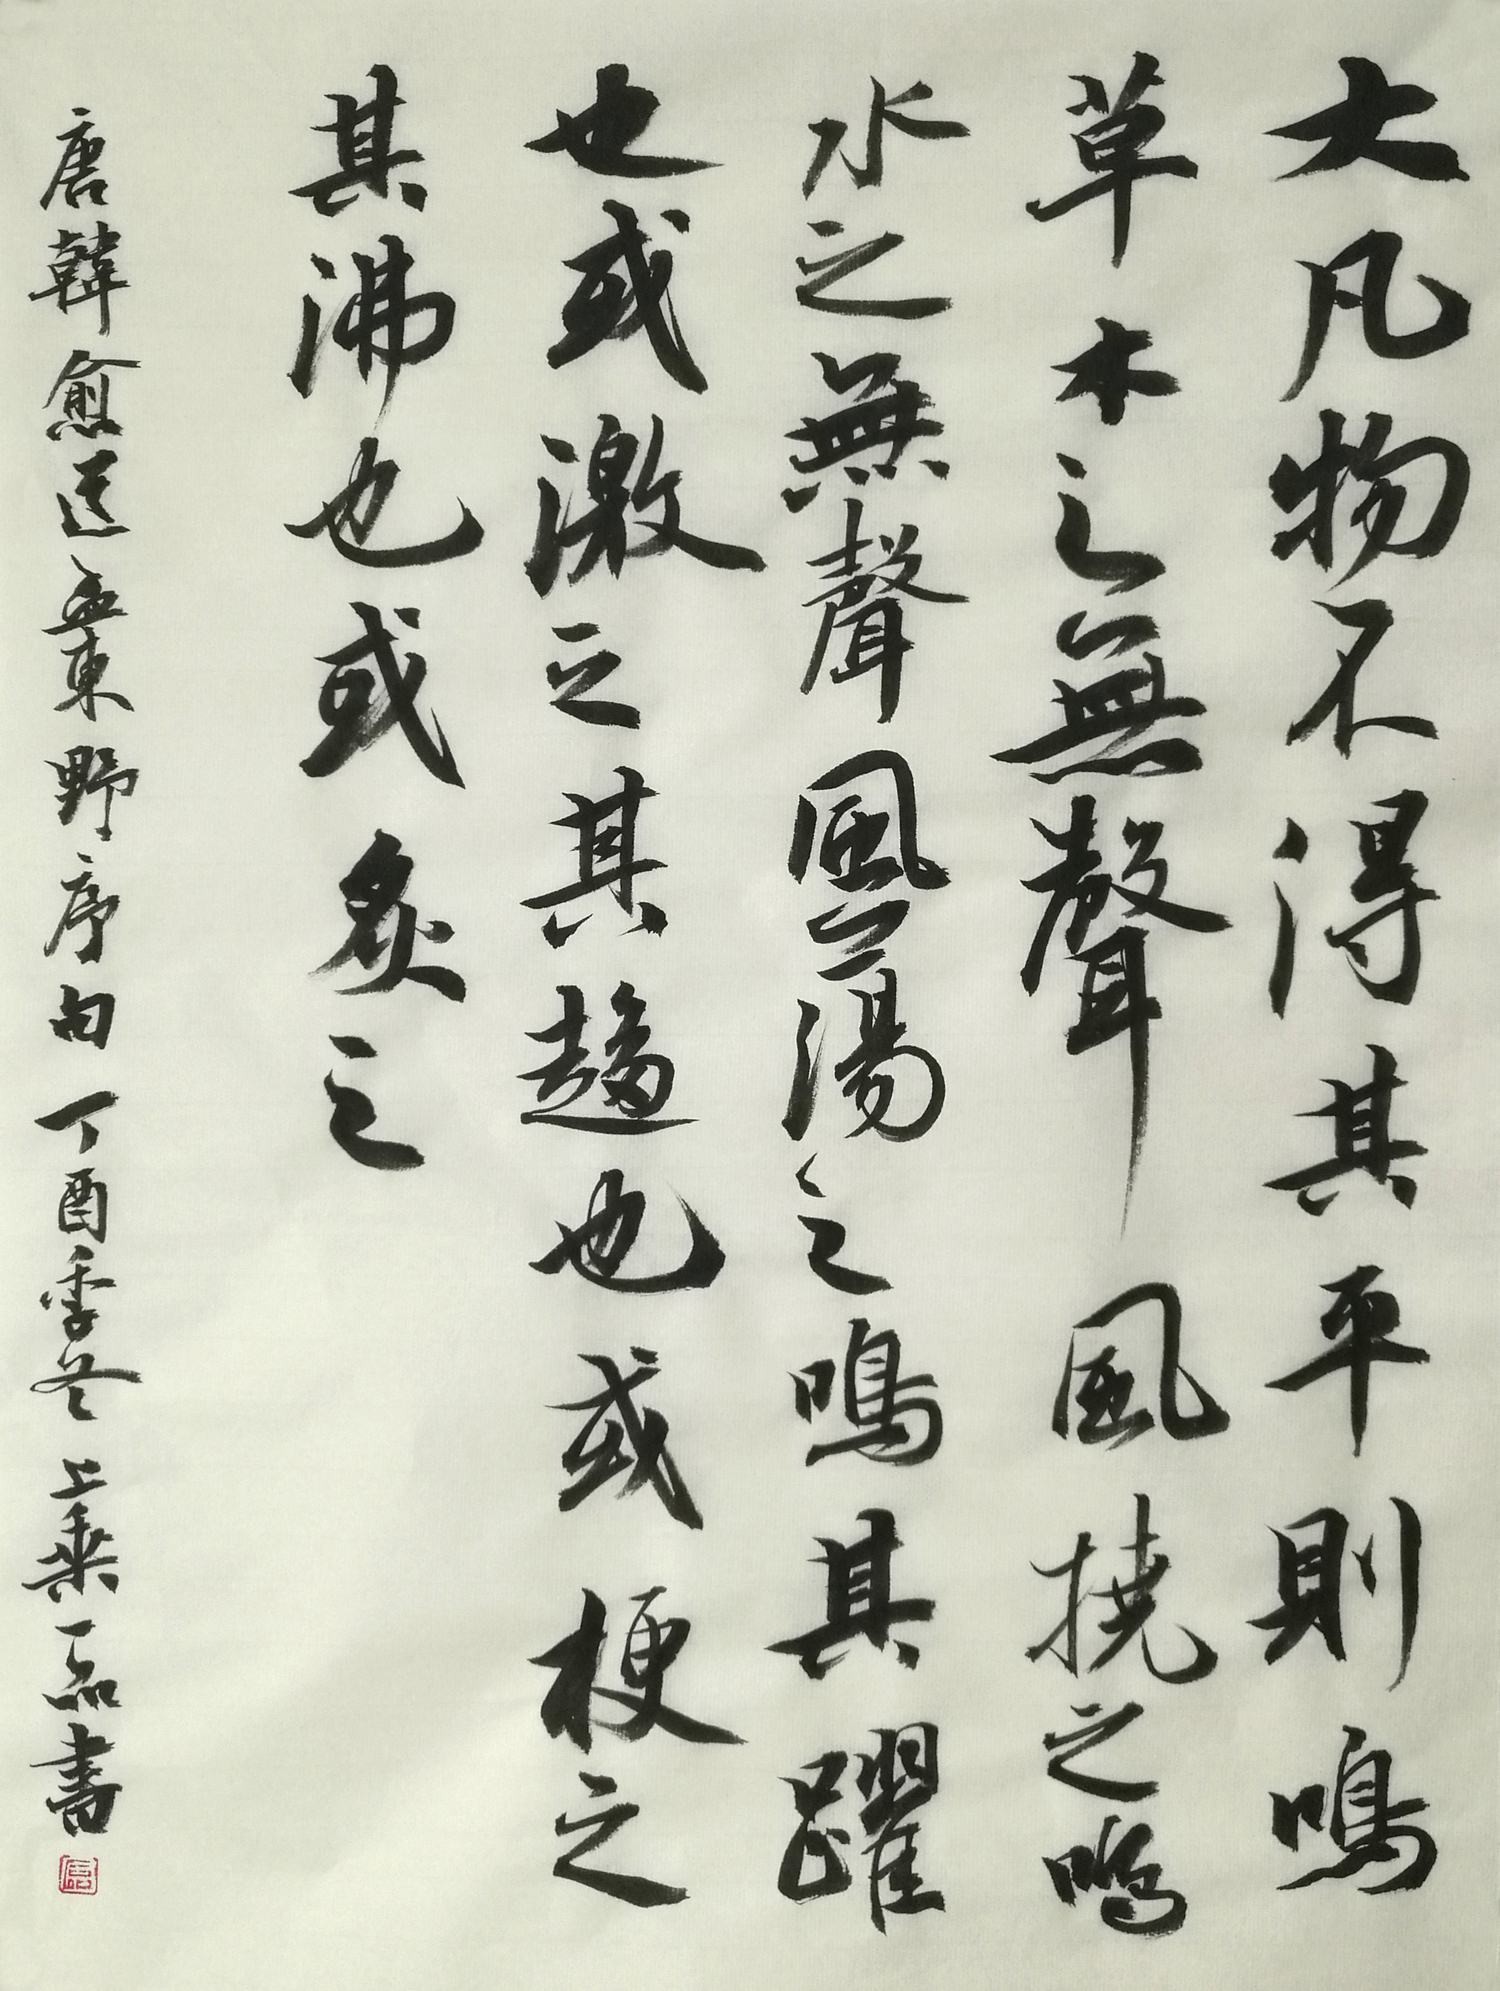 大凡物不得其平則鳴
草木之無聲風撓之鳴
水之無聲風蕩之鳴其躍
也或激之其趨也或梗之
其沸也或炙之
唐韓愈送孟東野序句丁酉季冬上乘一磊書